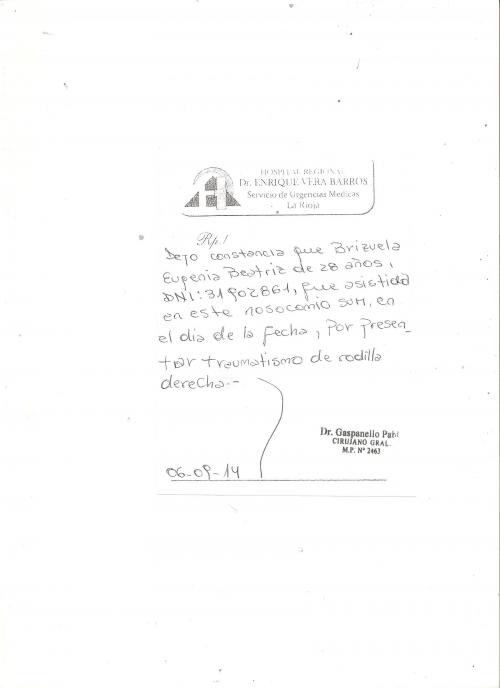 HOSPITAL REGIONAL
Dr. ENRIQUE VERA BARROS
Servicio de Urgencias Medicas
La Rioja
Rp./
Dejo constancia que Brizuela
Eugenia Beatriz de 28 años,
DNI: 31902861, fue asistida
en este nosocomio SUM, en
el dia de la fecha, por presen_
tar traumatismo de rodilla
derecha.-
Dr. Gaspanello Pabl
CIRUJANO GRAL.
M.P. Nº 2463
06-09-14